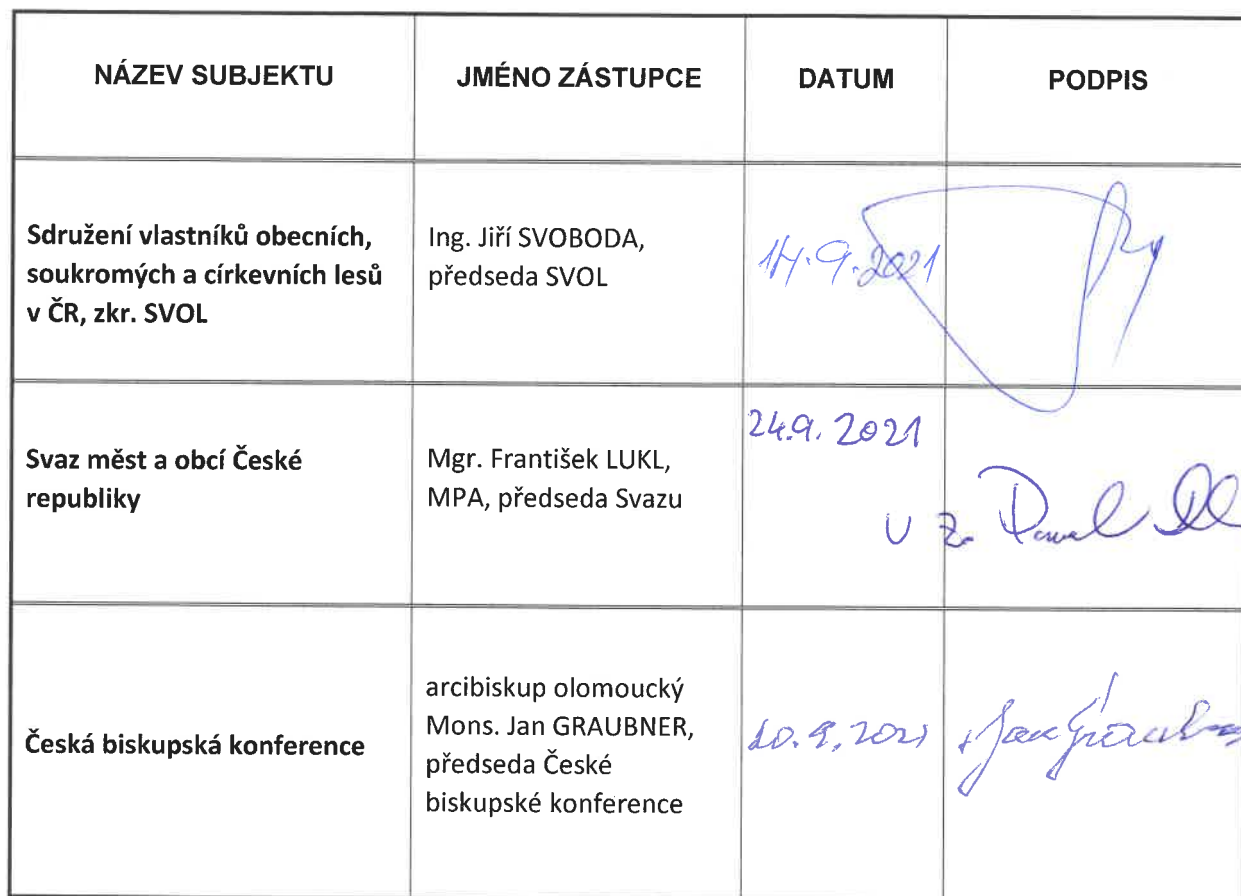 NÁZEV SUBJEKTU JMÉNO ZÁSTUPCE DATUM PODPIS
Sdružení vlastníků obecních,
soukromých a církevních lesů
v ČR, zkr. SVOL
Ing. Jiří SVOBODA,
předseda SVOL
14.9.2021
Svaz měst a obcí České
republiky
Mgr. František LUKL,
MPA, předseda Svazu
24.9. 2021
Česká biskupská konference
arcibiskup olomoucký
Mons. Jan GRAUBNER,
předseda České
biskupské konference
20.9.2021
+ Jan Graubner